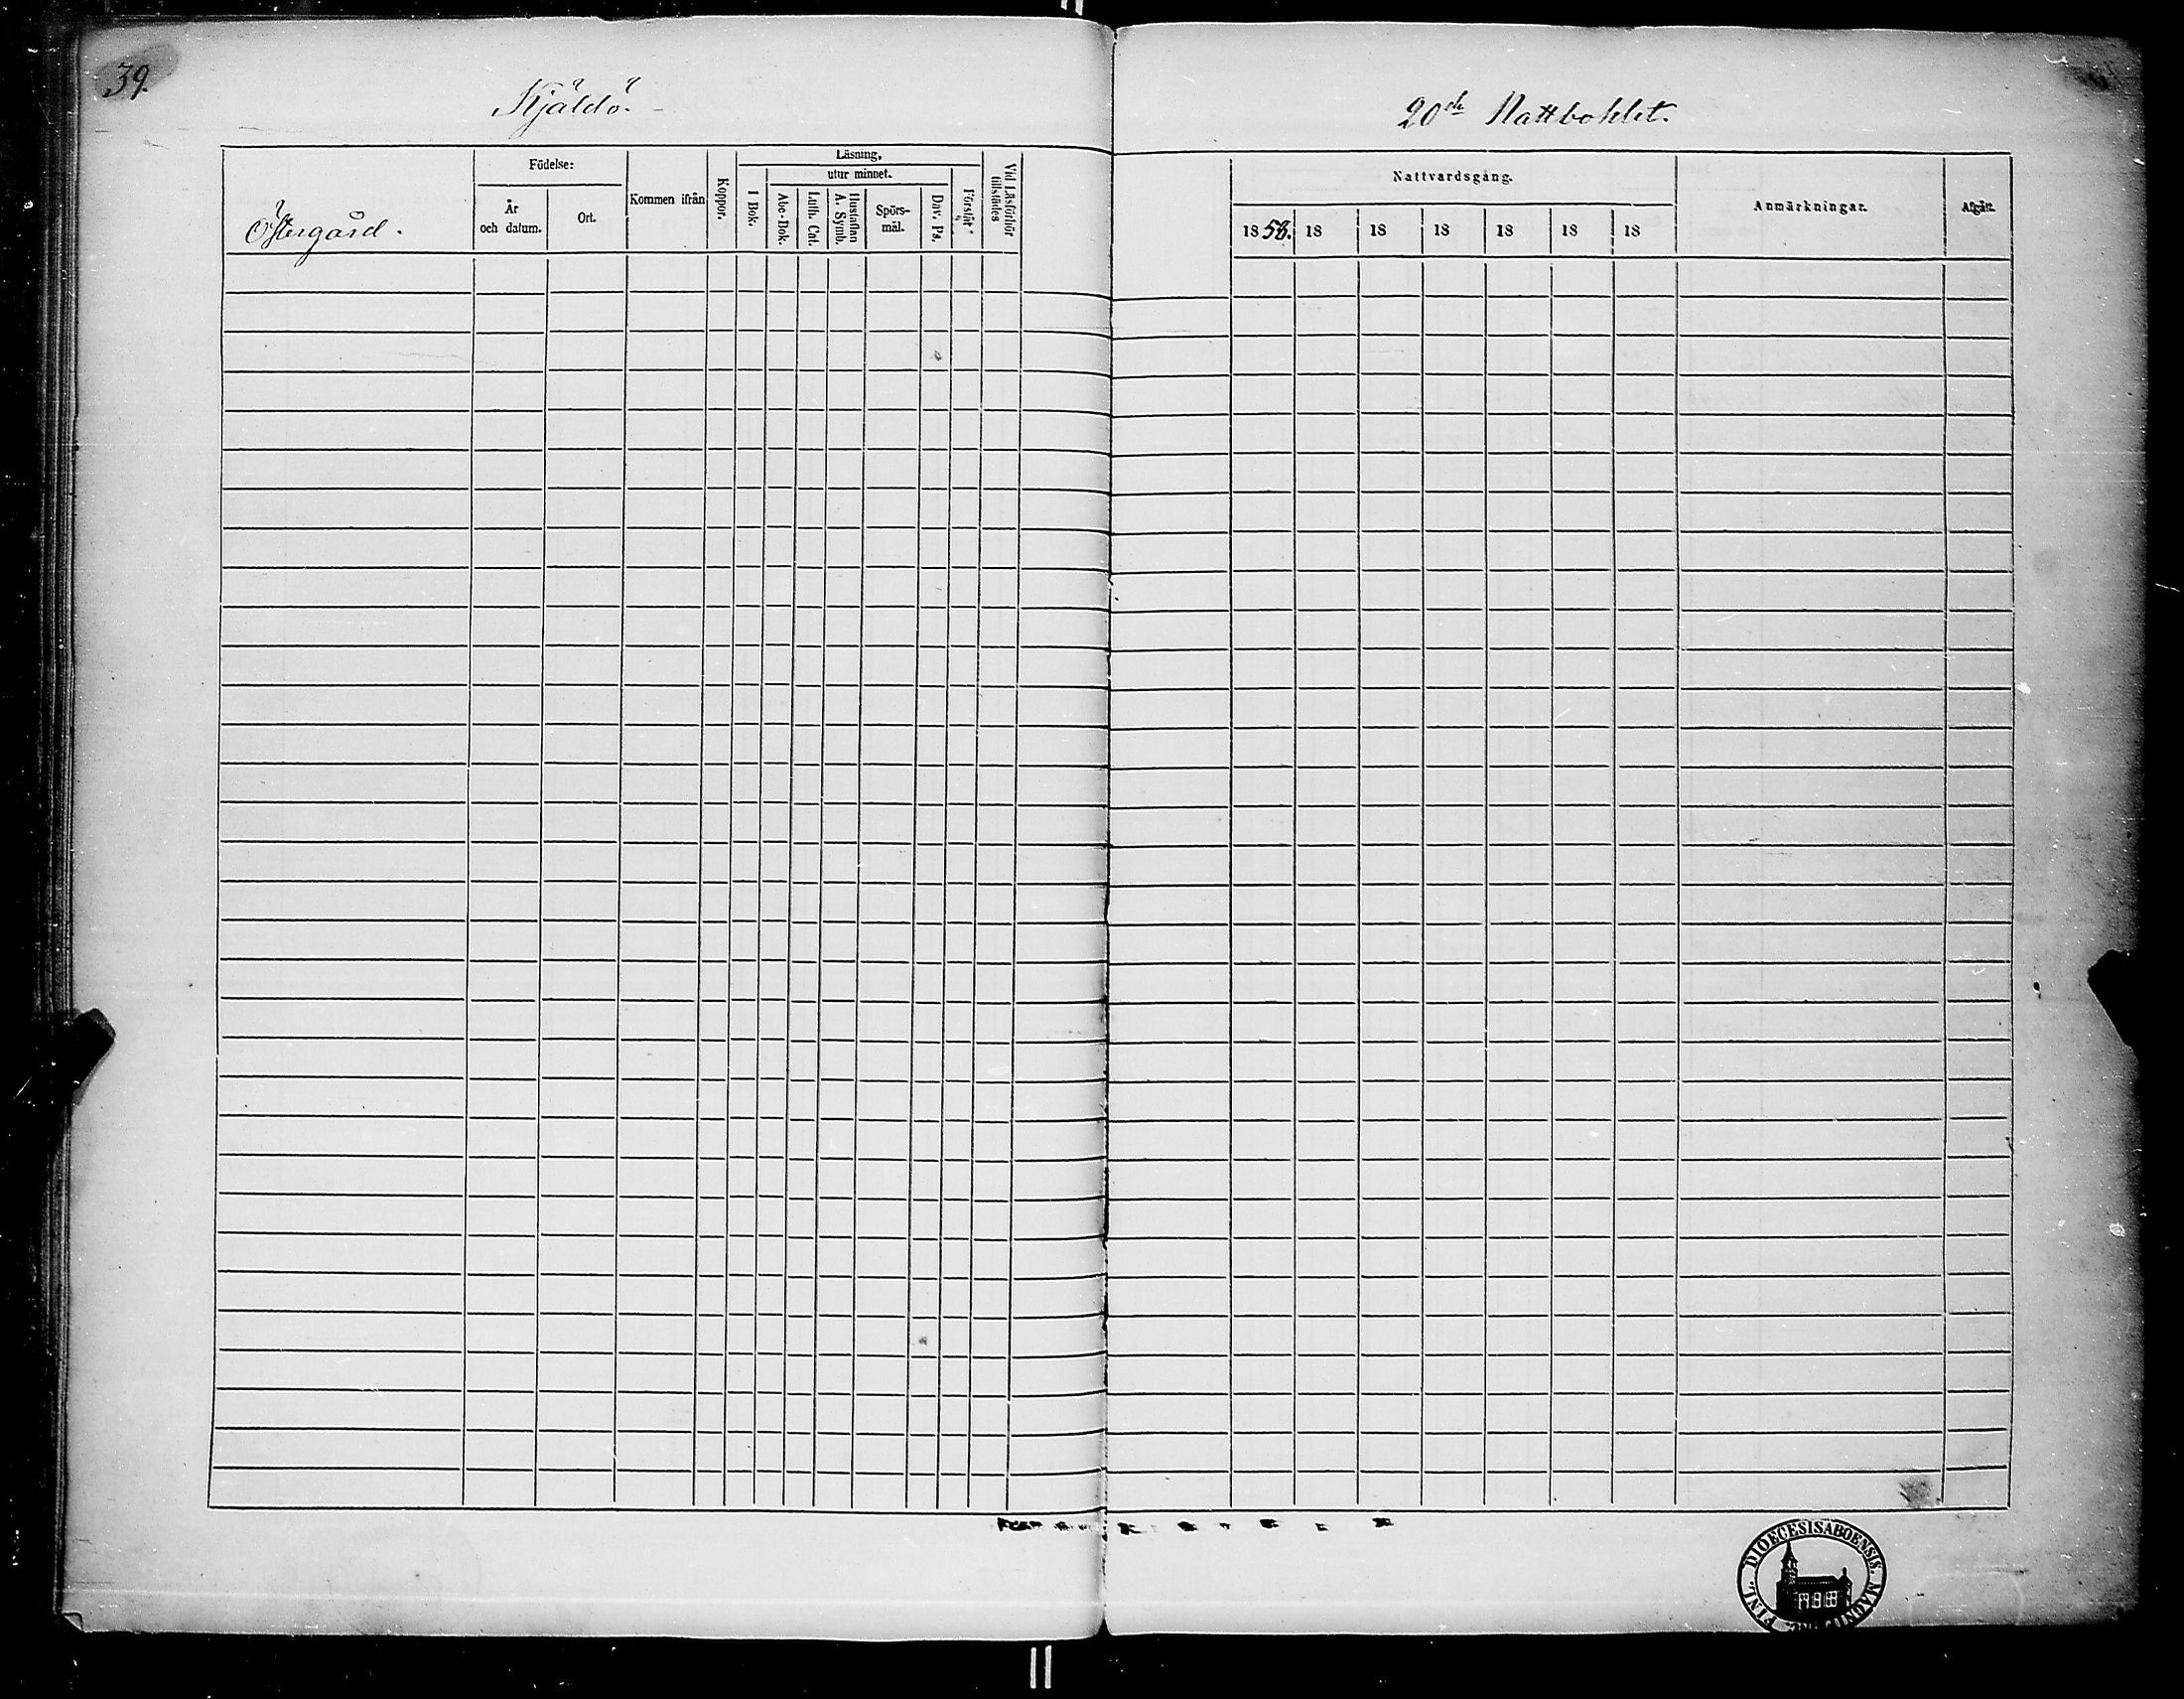 39.
Kjäldö.
20de Nattbohlet.
Östergård.
Födelse:
År och datum.
Ort.
Kommen ifrån
Koppor.
Läsning,
I Bok.
utur minnet.
Abc-Bok.
Luth. Cat.
Hustaflan A. Symb.
Spörs-mål.
Dav. Ps.
Förstår
Vid Läsförhör tillstädes
Nattvardsgång.
1858. 18 18 18 18 18 18
Anmärkningar.
Afgått.
FINL. DIOECESIS ABOENSIS. MAGNI